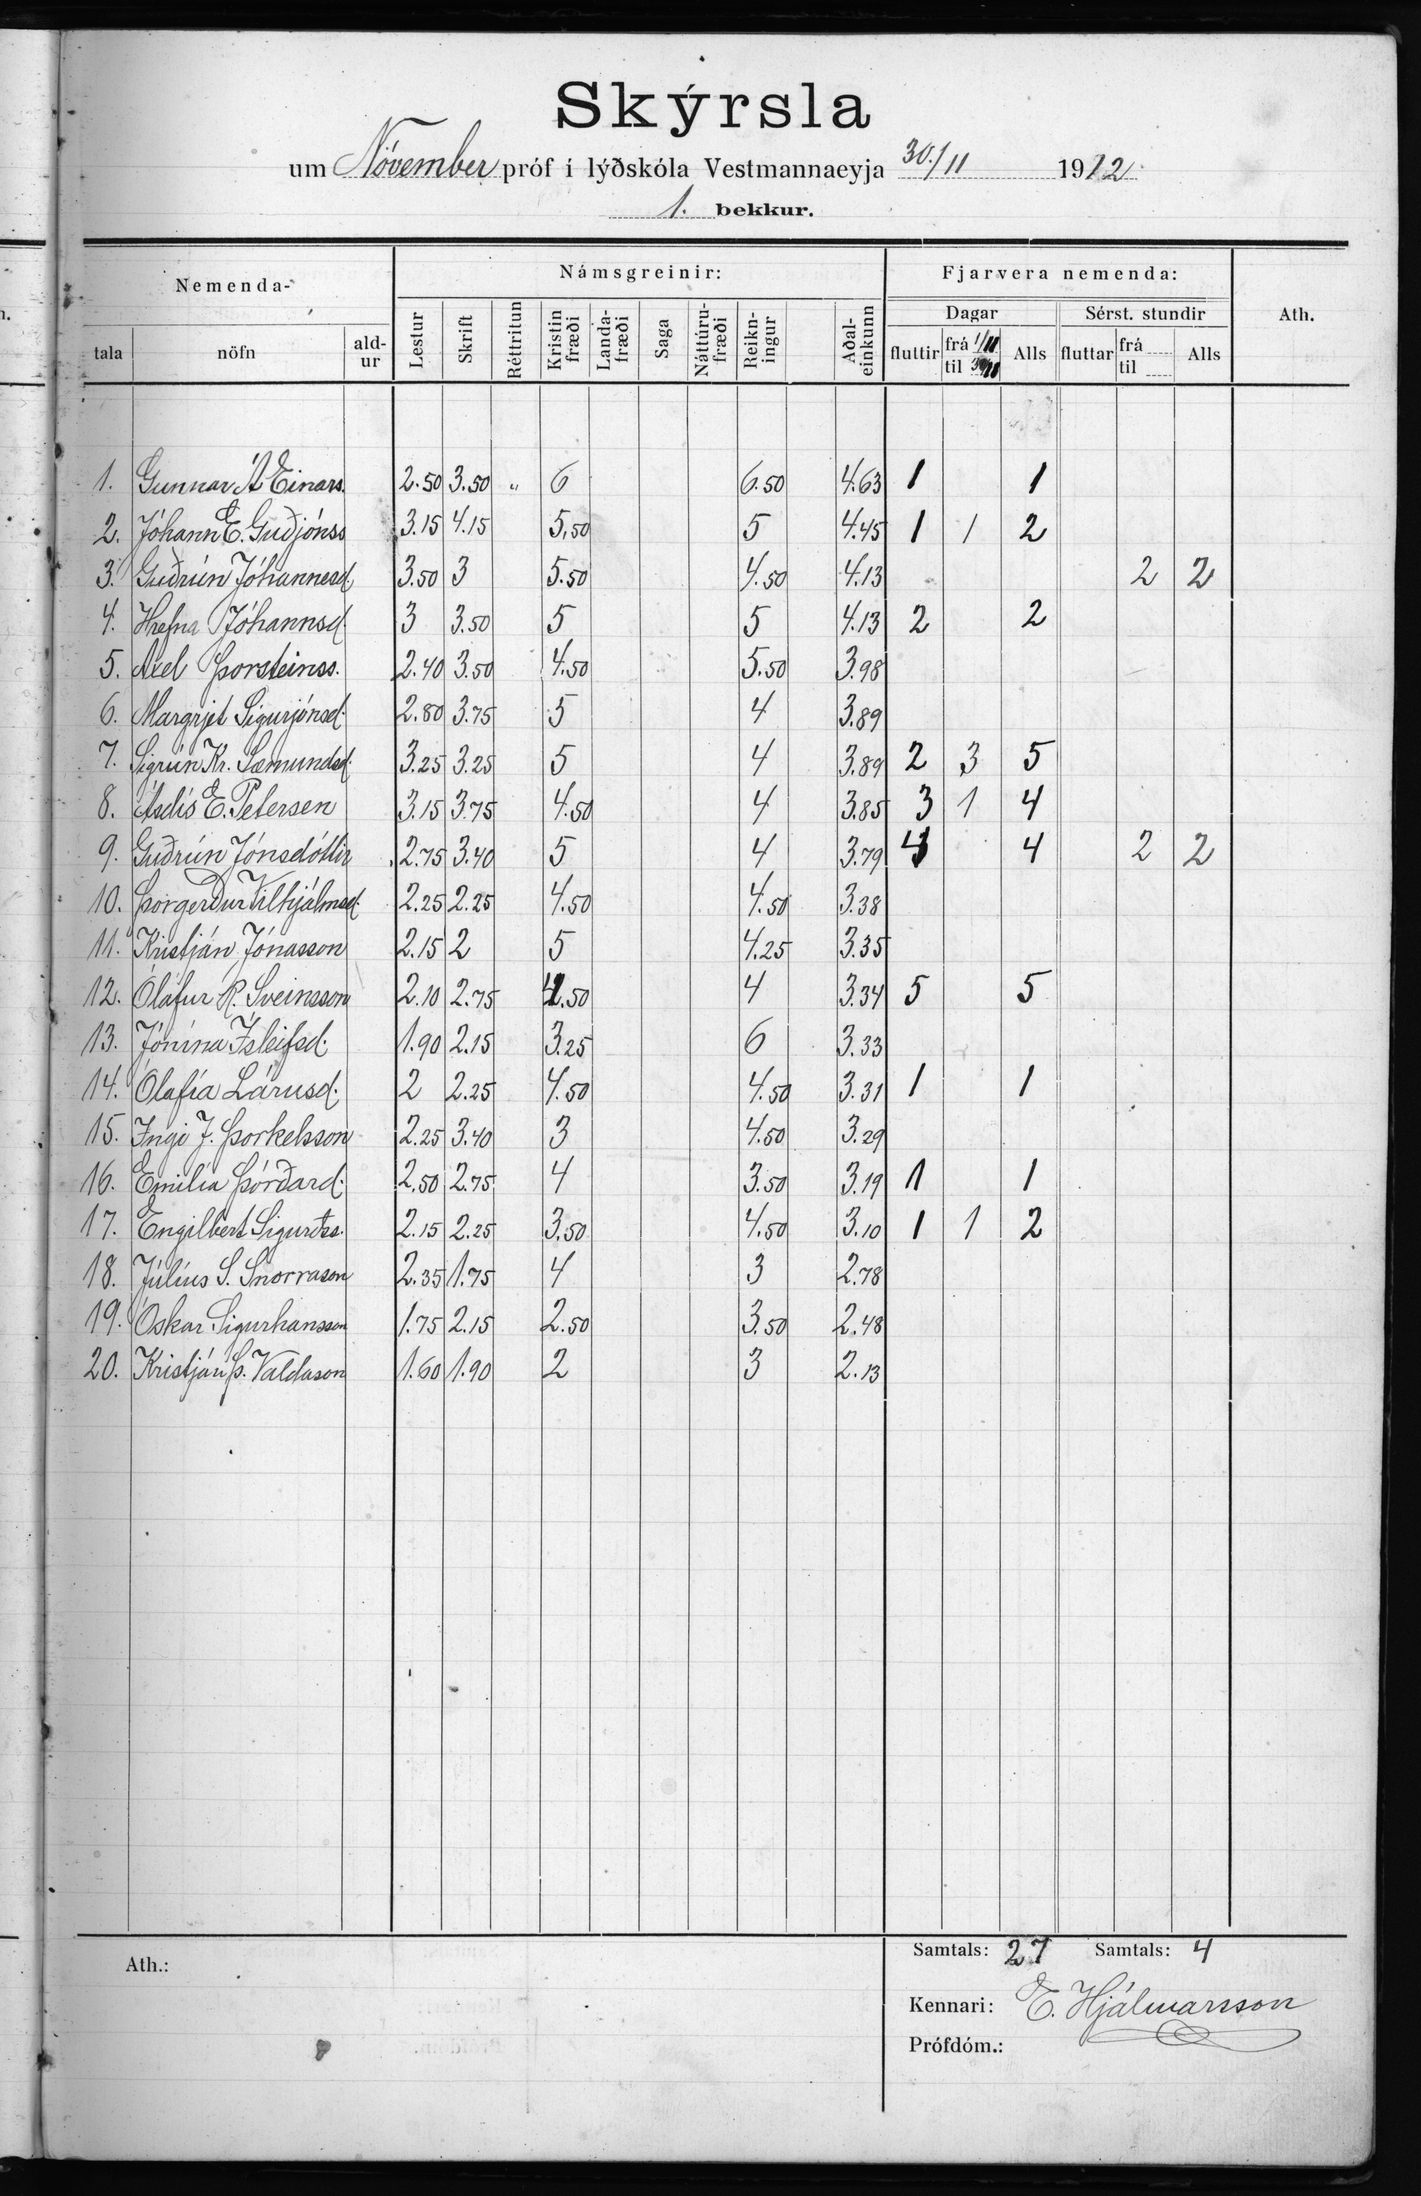 Skýrsla
um Nóvember próf í lýðskóla Vestmannaeyja 30./11 1912
1. bekkur.
Nemenda- Námsgreinir: Fjarvera nemenda: Ath.
Dagar Sérst. stundir
tala nöfn ald-ur Lestur Skrift Réttritun Kristin fræði Landa-fræði Saga Náttúru-fræði Reikn-ingur Aðal-einkunn fluttir frá 1/11 til 30/11 Alls fluttar frá til Alls
1. Gunnar Á Einars. 2.50 3.50 " 6 6.50 4.63 1 1
2. Jóhann E. Guðjónss 3.15 4.15 5,50 5 4.45 1 1 2
3. Guðrún Jóhannesd. 3.50 3 5.50 4.50 4.13 2 2
4. Hrefna Jóhannsd. 3 3.50 5 5 4.13 2 2
5. Axel Þorsteinss. 2.40 3.50 4.50 5.50 3.98
6. Margrjet Sigurjónsd. 2.80 3.75 5 4 3.89
7. Sigrún Kr. Sæmundsd. 3.25 3.25 5 4 3.89 2 3 5
8. Ásdís E. Petersen 3.15 3.75 4.50 4 3.85 3 1 4
9. Guðrún Jónsdóttir 2.75 3.40 5 4 3.79 4 4 2 2
10. Þorgerður Vilhjálmsd. 2.25 2.25 4.50 4.50 3.38
11. Kristján Jónasson 2.15 2 5 4.25 3.35
12. Óláfur R. Sveinsson 2.10 2.75 4.50 4 3.34 5 5
13. Jónína Ísleifsd. 1.90 2.15 3.25 6 3.33
14. Ólafía Lárusd. 2 2.25 4.50 4.50 3.31 1 1
15. Ingi J. Þorkelsson 2.25 3.40 3 4.50 3.29
16. Emilía Þórðard. 2.50 2.75 4 3.50 3.19 1 1
17. Engilbert Sigurðss. 2.15 2.25 3.50 4.50 3.10 1 1 2
18. Júlíus S. Snorrason 2.35 1.75 4 3 2.78
19. Óskar Sigurhansson 1.75 2.15 2.50 3.50 2.48
20. Kristján Þ. Valdason 1.60 1.90 2 3 2.13
Ath.: Samtals: 27 Samtals: 4
Kennari: E. Hjálmarsson
Prófdóm.: